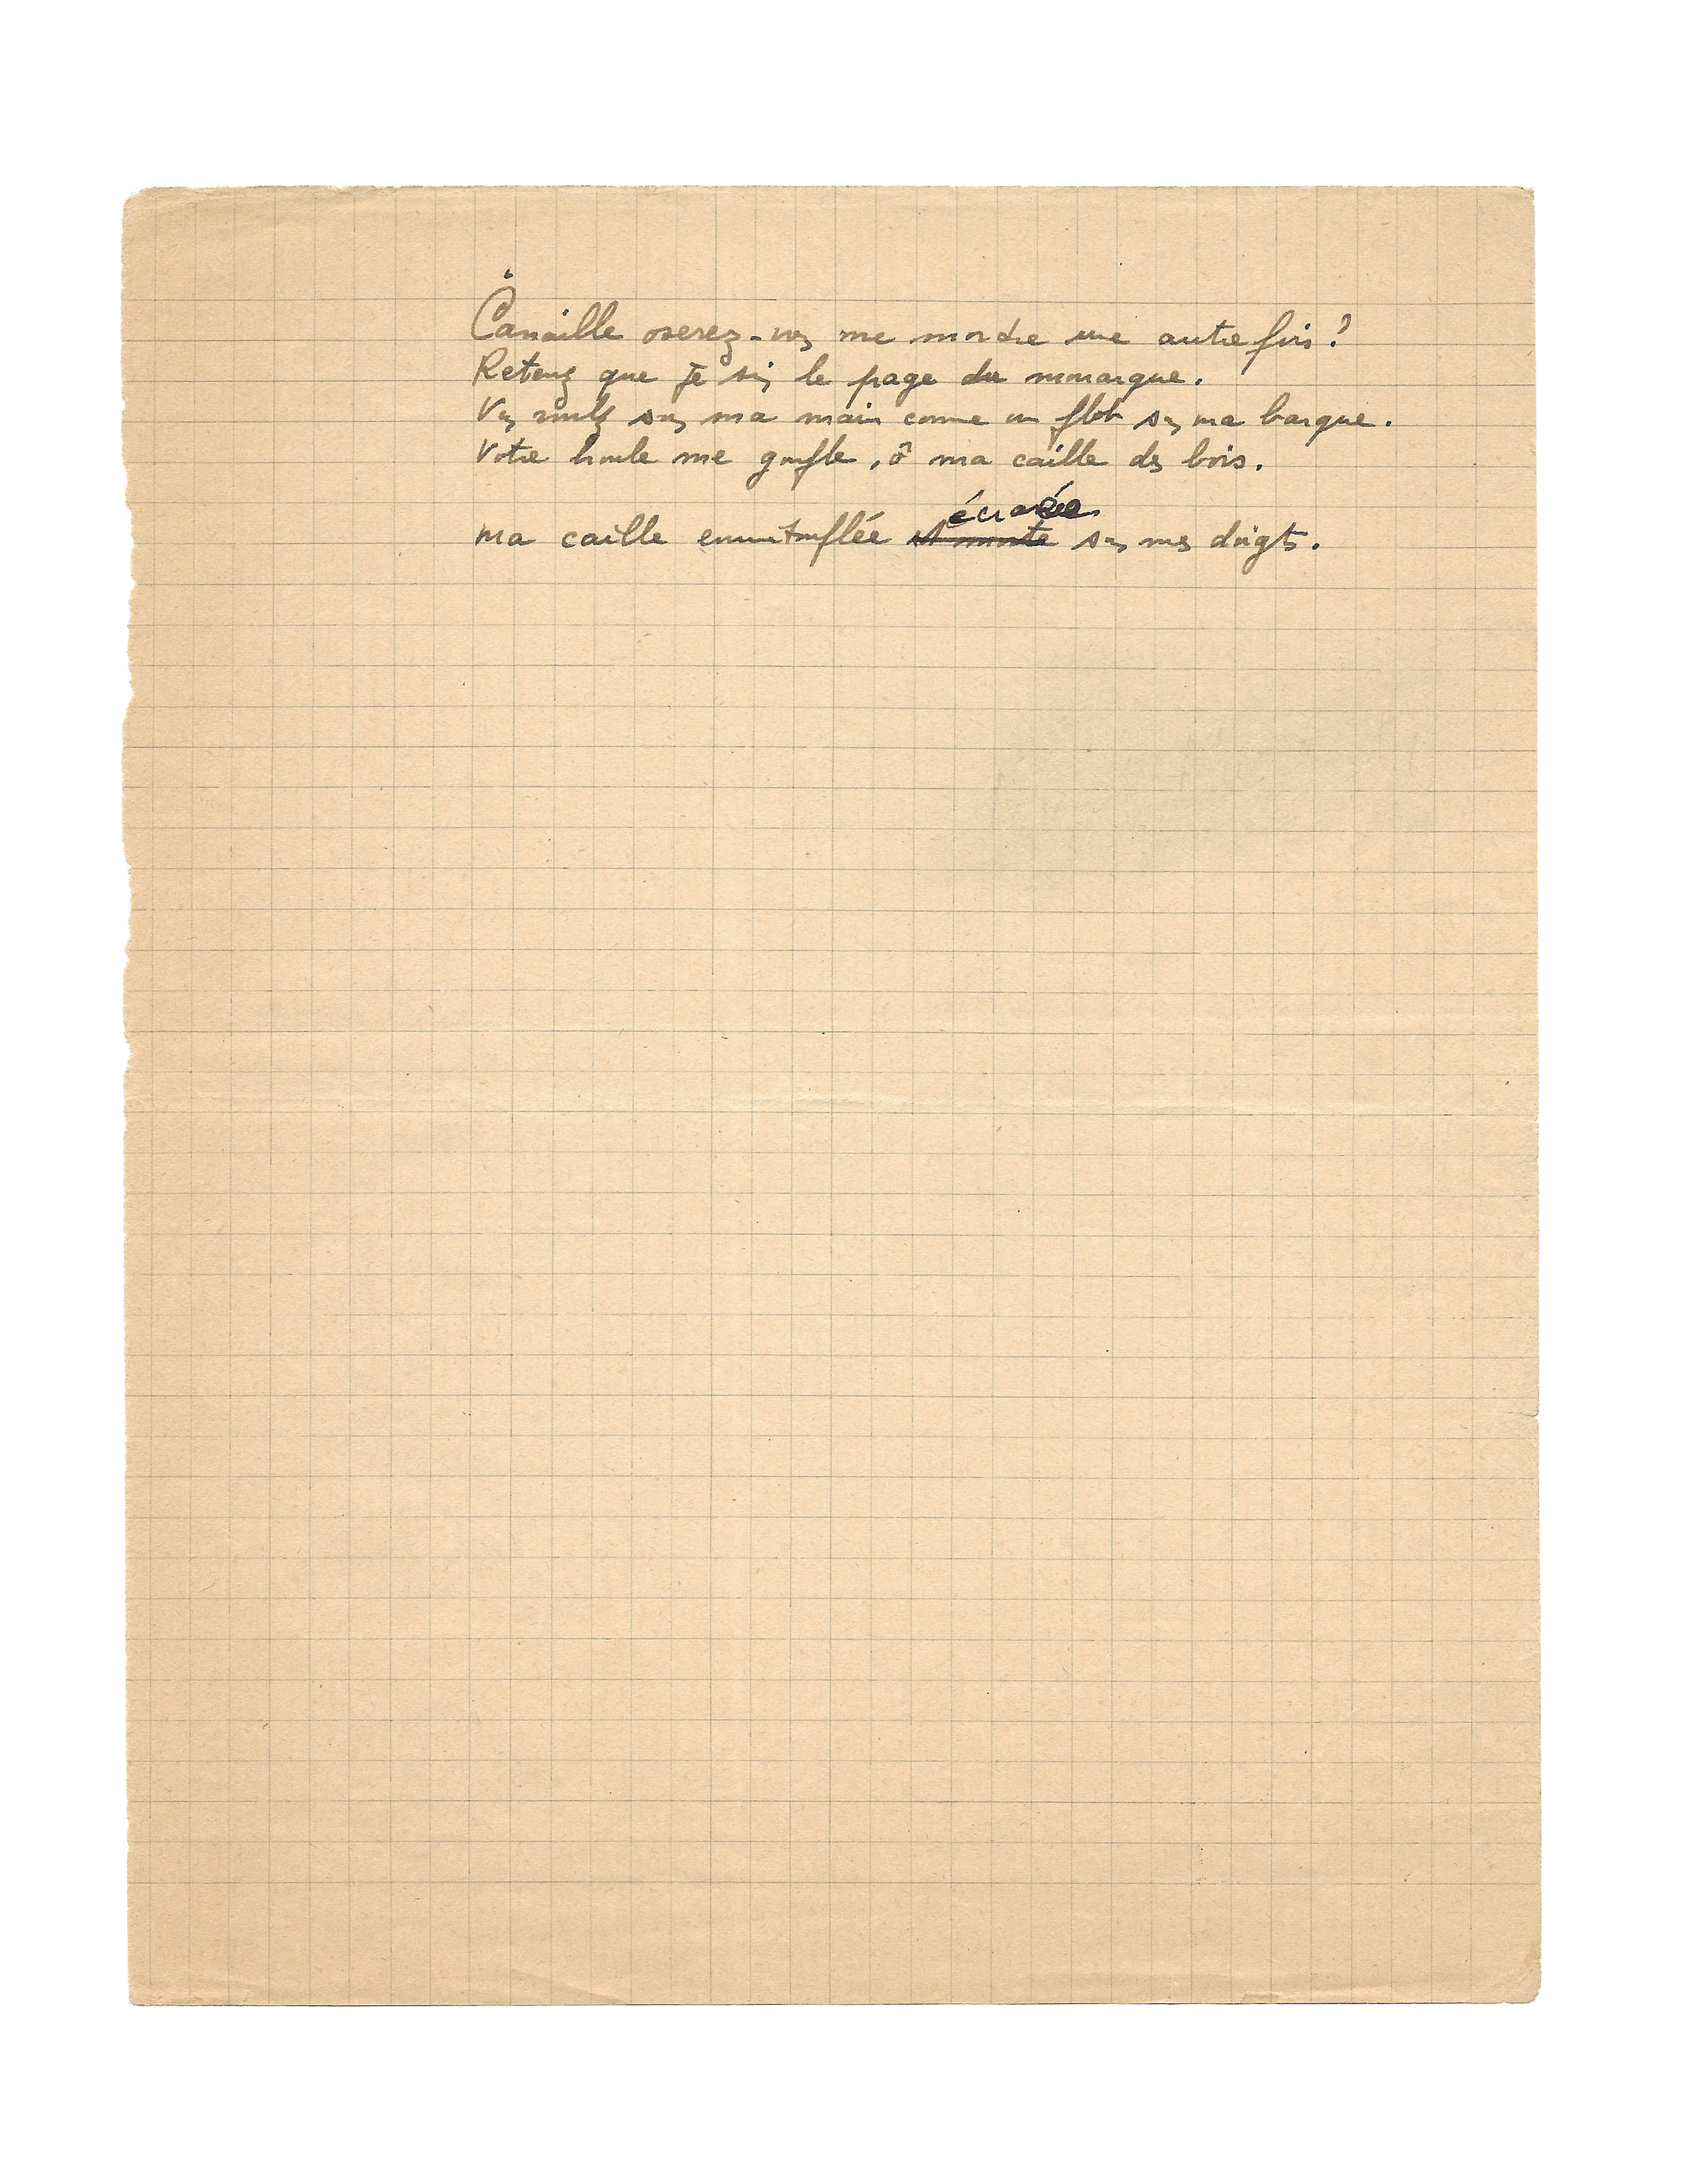 Canaille oserez-vous me mordre une autre fois ?
Retenez que je suis le page du monarque.
Vous roulez sous ma main comme un flot sous ma barque.
Votre houle me gonfle, ô ma caille des bois.
écrasée
ma caille emmitouflée est morte sous mes doigts.